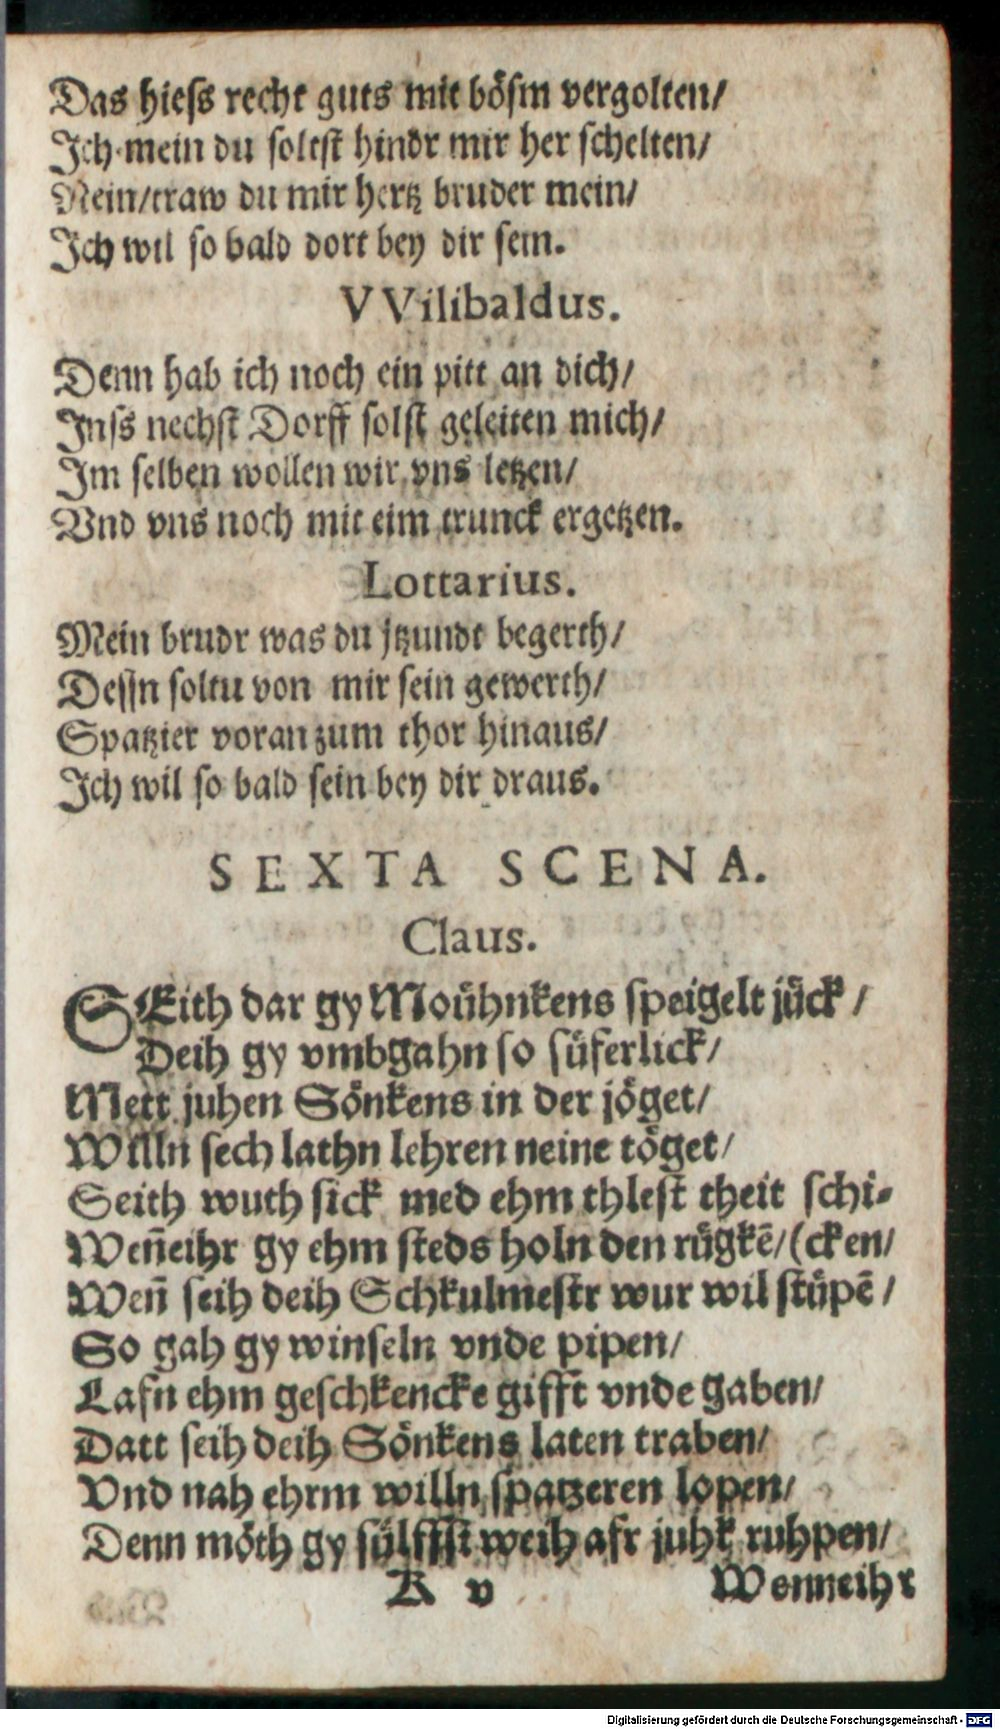 Das hiess recht guts mit bösm vergolten/
Ich mein du soltst hindr mir her schelten/
Nein/traw du mir hertz bruder mein/
Ich wil so bald dort bey dir sein.
VVilibaldus.
Denn hab ich noch ein pitt an dich/
Inss nechst Dorff solst geleiten mich/
Im selben wollen wir vns letzen/
Vnd vns noch mit eim trunck ergetzen.
Lottarius.
Mein brudr was du jtzundt begerth/
Dessn soltu von mir sein gewerth/
Spatzier voran zum thor hinaus/
Ich wil so bald sein bey dir draus.
SEXTA SCENA.
Claus.
SEith dar gy Moühnkens speigelt jück/
Deih gy vmbgahn so süferlick/
Mett juhen Sönkens in der jöget/
Willn sech lathn lehren neine töget/
Seith wuth sick med ehm thlest theit schi-
Weñeihr gy ehm steds holn den rügkē/(cken/
Weñ seih deih Schkulmestr wur wil stüpē/
So gah gy winseln vnde pipen/
Lasn ehm geschkencke gifft vnde gaben/
Datt seih deih Sönkens laten traben/
Vnd nah ehrm willn spatzeren lopen/
Denn möth gy sülffst weih afr juhk ruhpen/
K v
Wenneihr
Digitalisierung gefördert durch die Deutsche Forschungsgemeinschaft - DFG